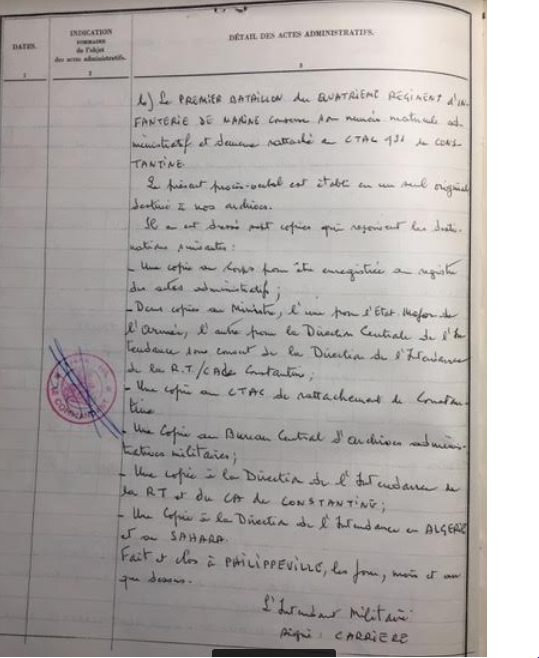 DATES.
1
INDICATION
SOMMAIRE
de l'objet
des actes administratifs.
2
DÉTAIL DES ACTES ADMINISTRATIFS.
3
b) Le PREMIER BATAILLON du QUATRIEME REGIMENT d'IN-
FANTERIE DE MARINE conserve son numéro matricule ad-
ministratif et demeure rattaché au CTAC 931 de CONS-
TANTINE.
Le présent procès-verbal est établi en un seul original
destiné à nos archives.
Il en est dressé sept copies qui reçoivent les desti-
nations suivantes :
- Une copie au Corps pour être enregistrée au registre
des actes administratifs ;
- Deux copies au Ministre, l'une pour l'Etat Major de
l'Armée, l'autre pour la Direction Centrale de l'In-
tendance sous couvert de la Direction de l'Intendance
de la R.T/CA de Constantine ;
- Une copie au CTAC de rattachement de Constan-
tine
- Une Copie au Bureau Central d'archives adminis-
tratives militaires ;
- Une copie à la Direction de l'Intendance de
la RT et du CA de CONSTANTINE ;
- Une Copie à la Direction de l'Intendance en ALGERIE
et au SAHARA.
Fait et clos à PHILIPPEVILLE, les jour, mois et an
que dessus.
L'Intendant Militaire
signé : CARRIERE